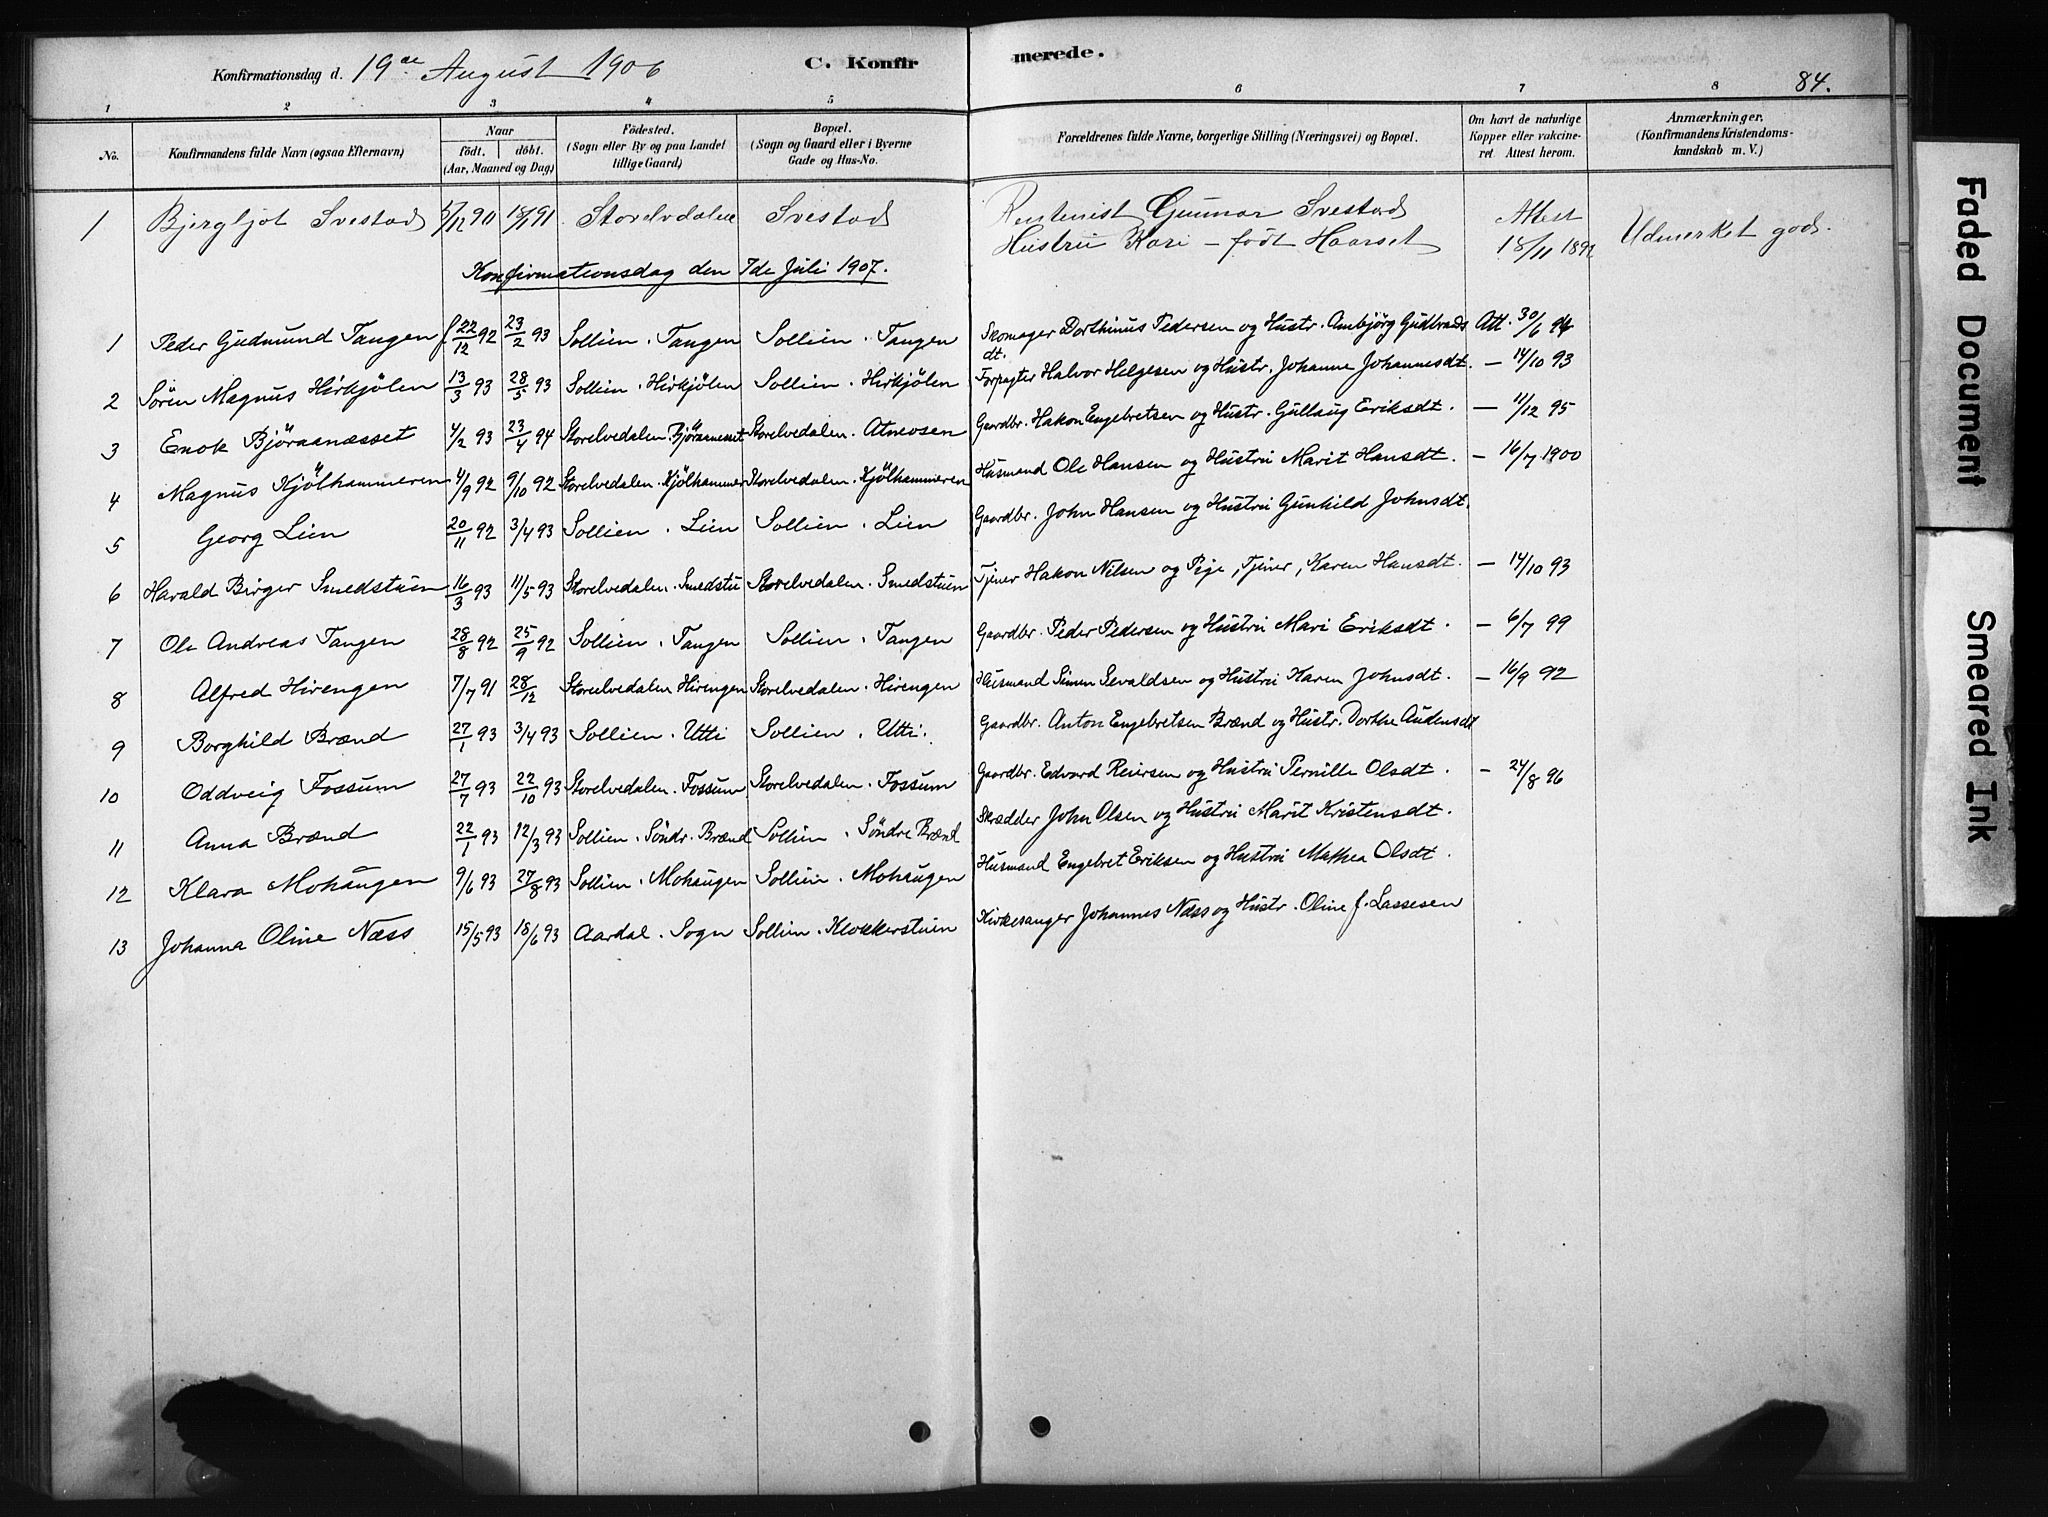 Konfirmationsdag d. 19de August 1906 C. Konfirmerede. 84.
1 2 3 4 5 6 7 8
No. Konfirmandens fulde Navn (ogsaa Efternavn) Naar födt. döbt. (Aar, Maaned og Dag) Födested. (Sogn eller By og paa Landet tillige Gaard) Bopæl. (Sogn og Gaard eller i Byerne Gade og Hus-No. Forældrenes fulde Navne, borgerlige Stilling (Næringsvei) og Bopæl. Om havt de naturlige Kopper eller vakcineret. Attest herom. Anmærkninger. (Konfirmandens Kristendomskundskab m. V.)
1 Bjergljot Svestad 90 91 Storelvdalen Svestad Rentenist Gunnar Svestad Attest
Hustru Kari - født Haarset 18/11 1892 Udmerket god.
Konfirmationsdag den 7de Juli 1907.
1 Peder Gudmund Tangen f 22/12 92 23/2 93 Sollien. Tangen Sollien. Tangen Skomager Dorthinus Pedersen og Hustr. Ambjörg Gudbrandsdt. Att. 30/6 94
2 Sören Magnus Hirkjölen 13/3 93 28/5 93 Sollien. Hirkjölen Sollien. Hirkjölen Forpagter Halvor Helgesen og Hustr. Johanne Johannesdt. - 14/10 93
3 Enok Björaanæsset 4/2 93 23/4 94 Storelvedalen. Björaanesset Storelvedalen. Atneosen Gaardbr. Hakon Engebretsen og Hustr. Gullaug Eriksdt. - 11/12 95
4 Magnus Kjölhammeren 4/9 92 9/10 92 Storelvedalen. Kjölhammer Storelvedalen. Kjölhammeren Husmand Ole Hansen og Hustru Marit Hansdt. - 16/7 1900
5 Georg Lien 20/11 92 3/4 93 Sollien. Lien Sollien. Lien Gaardbr. John Hansen og Hustru Gunhild Johnsdt.
6 Harald Birger Smedstuen 16/3 93 11/5 93 Storelvedalen. Smedstu Storelvedalen. Smedstuen Tjener Hakon Nilsen og Pige, Tjener, Karen Hansdt. - 14/10 93
7 Ole Andreas Tangen 28/8 92 25/9 92 Sollien. Tangen Sollien. Tangen Gaardbr. Peder Pedersen og Hustru Mari Eriksdt. - 6/7 99
8 Alfred Hirengen 7/7 91 28/12 Storelvedalen Hirengen Storelvedalen. Hirengen Husmand Simen Sevaldsen og Hustru Karen Johnsdt. - 16/9 92
9 Borghild Brænd 27/1 93 3/4 93 Sollien. Utti Sollien. Utti. Gaardbr. Anton Engebretsen Brænd og Hustr. Dorthe Audensdt
10 Oddveig Fossum 27/7 93 22/10 93 Storelvedalen. Fossum Storelvedalen. Fossum Gaardbr. Edvard Reiersen og Hustru Pernille Olsdt. - 24/8 96
11 Anna Brænd 22/1 93 12/3 93 Sollien. Söndr. Brænd Sollien. Söndre Brænd Skrædder John Olsen og Hustru Marit Kristensdt.
12 Klara Mohaugen 9/6 93 27/8 93 Sollien. Mohaugen Sollien. Mohaugen Husmand Engebret Eriksen og Hustru Mathea Olsdt.
13 Johanna Oline Næss 15/5 93 18/6 93 Aardal. Sogn Sollien. Klokkerstuen Kirkesanger Johannes Næss og Hustr. Oline f. Lassesen
Faded Document
Smeared Ink